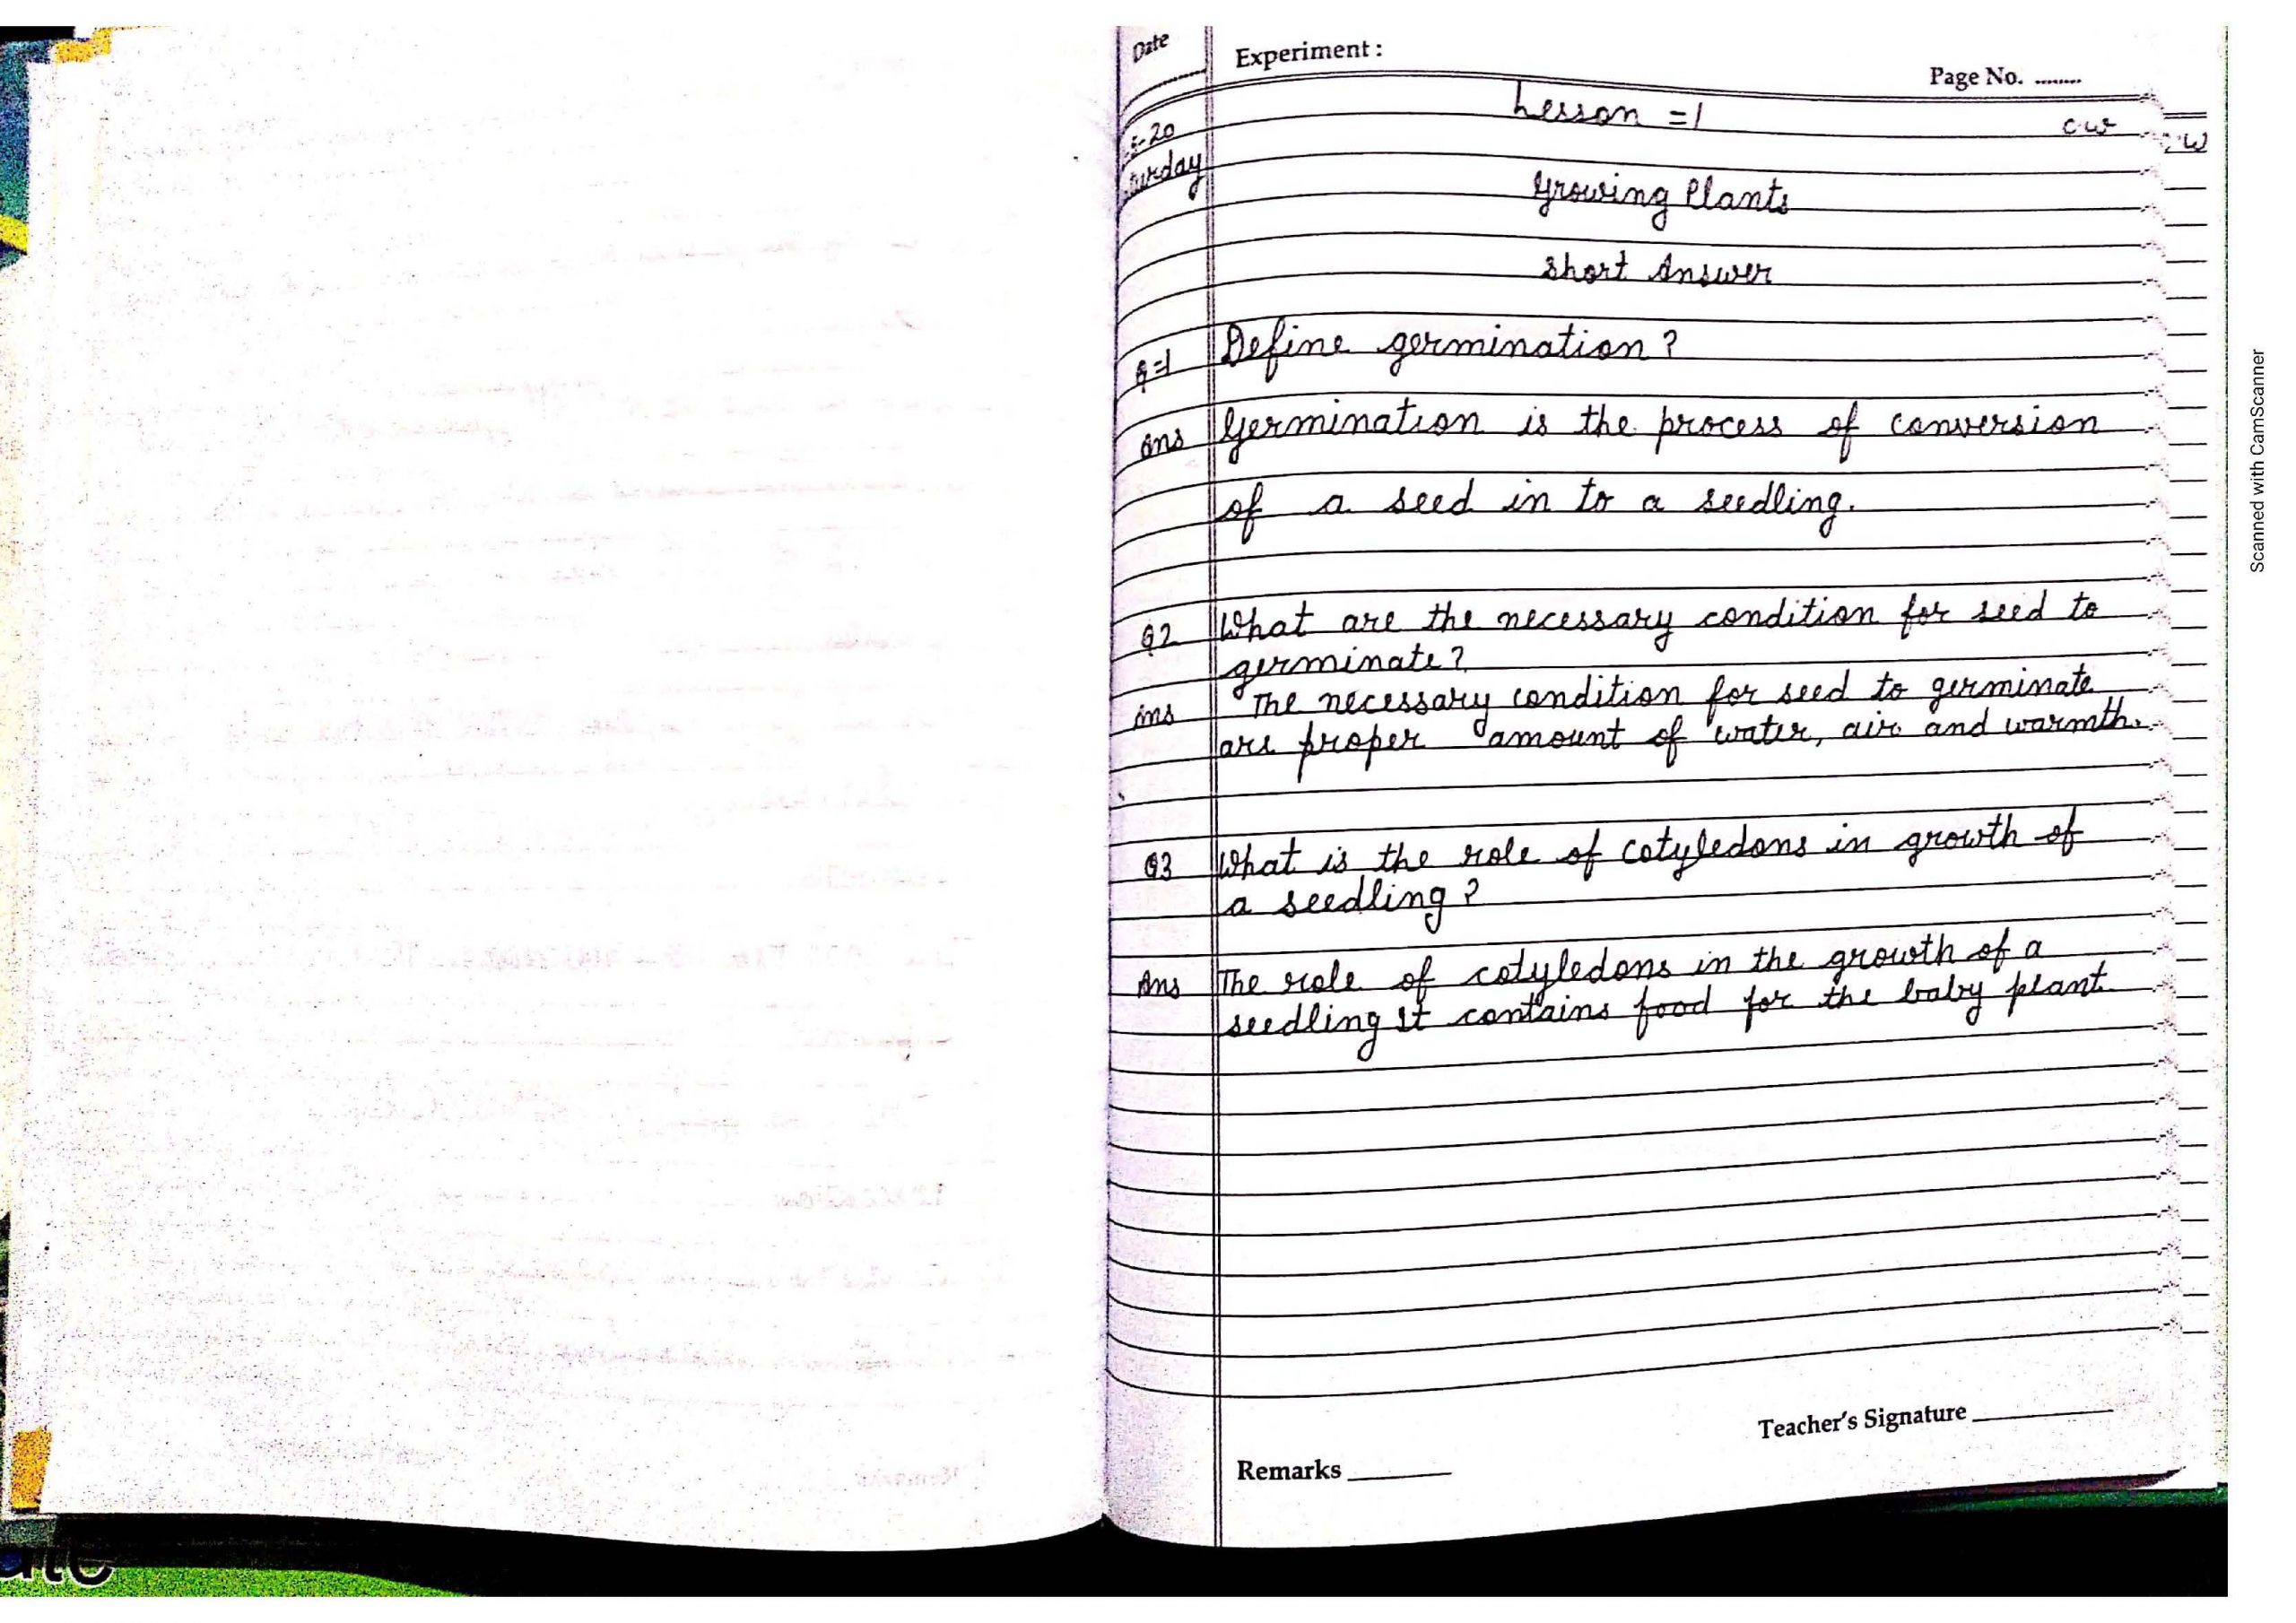 Date
Experiment :
Page No. ........
Lesson =1
C.W
Growing Plants
Short Answer
Q=1 Define germination?
Ans Germination is the process of conversion
of a seed in to a seedling.
Q2 What are the necessary condition for seed to
germinate?
Ans The necessary condition for seed to germinate
are proper amount of water, air and warmth.
Q3 What is the role of cotyledons in growth of
a seedling?
Ans The role of cotyledons in the growth of a
seedling It contains food for the baby plant
Teacher's Signature
Remarks
Scanned with CamScanner